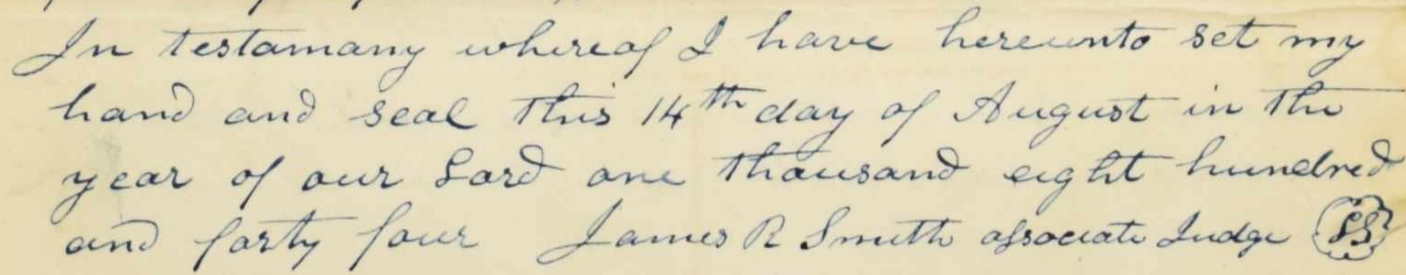 In testamany whereof I have hereunto set my
hand and seal this 14th day of August in the
year of our Lord one thousand eight hundred
and forty four James R Smith associate Judge LS